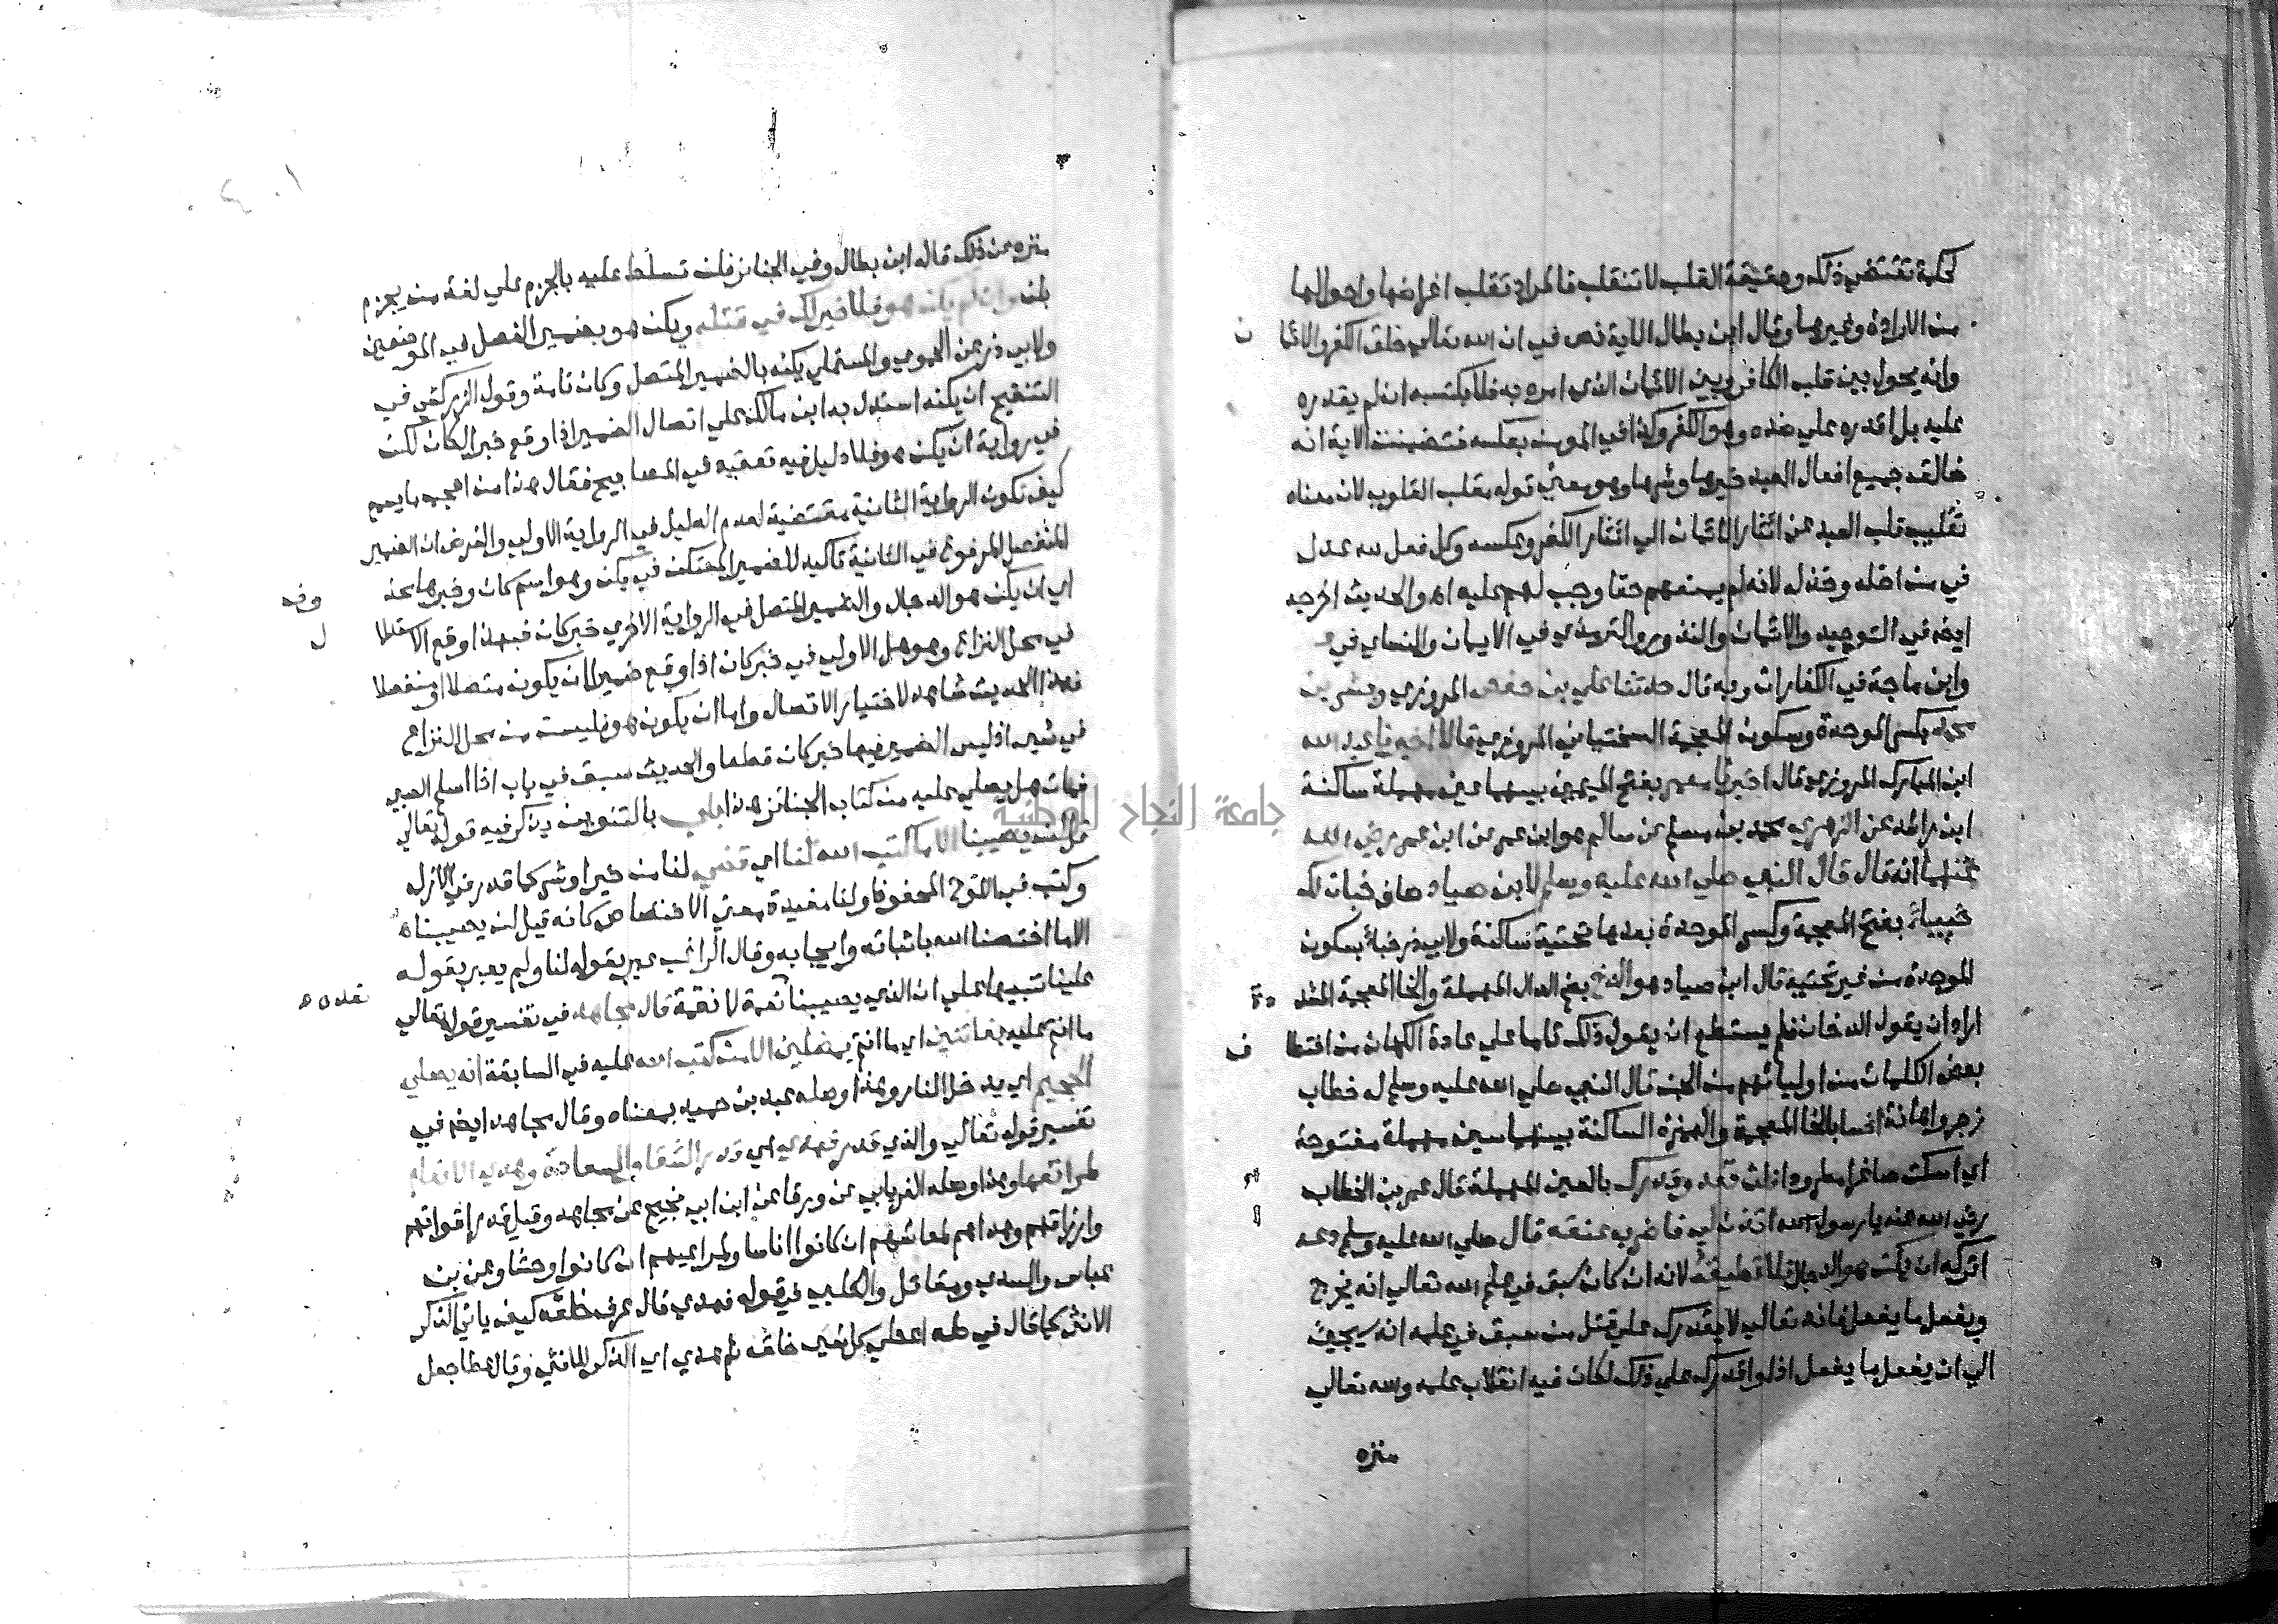 لحكمة تقتضي ذلك وحقيقة القلب لا تنقلب فالمراد تقلب اغراضها واحوالها
من الارادة وغيرها وقال ابن بطال الاية نص في ان الله تعالى خلق الكفر والايما ن
وانه يحول بين قلب الكافر وبين الايمان الذي امره به فلا يكتسبه ان لم يقدره
عليه بل اقدره علي ضده وهو الكفر وكذا في المومن بعكسه فتضمنت الاية انه
خالق جميع افعال العبد خيرها وشرها وهو معني قوله مقلب القلوب لان معناه
تقليب قلب العبد عن ايثار الايمان الي ايثار الكفر وعكسه وكل فعل لله عدل
في من اضله وخذله لانه لم يمنعهم حقا وجب لهم عليه اه والحديث اخرجه
ايض في التوحيد والايمان والنذور والترمذي في الايمان والنساي في
وابن ماجة في الكفارات وبه قال حدثنا علي بن حفص المروزي وبشر بن
محمد بكسر الموحدة وسكون المعجمة السختياني المروزي قالا اخبرنا عبد الله
ابن المبارك المروزي قال اخبرنا معمر بفتح الميمين بينهما عين مهملة ساكنة
ابن راشد عن الزهري محمد بن مسلم عن سالم هو ابن عمر عن ابن عمر رضي الله
عنهما انه قال قال النبي صلي الله عليه وسلم لابن صياد صاف خبات لك
خبيأ بفتح المعجمة وكسر الموحدة بعدها تحتية ساكنة ولابي ذر خبأ بسكون
الموحدة من غير تحتية قال ابن صياد هو الدخ بضم الدال المهملة والخا المعجمة المشد دة
اراد ان يقول الدخان فلم يستطع ان يقول ذلك تاما علي عادة الكهان من اختطا ف
بعض الكلمات من اوليائهم من الجن قال النبي صلي الله عليه وسلم له خطاب
زجر واهانة اخسا بالخا المعجمة والهمزة الساكنة بينهما سين مهملة مفتوحة
اي اسكت صاغرا مطرودا فلن تعدو قدرك بالعين المهملة قال عمر بن الخطاب
رضي الله عنه يا رسول الله ائذن لي فاضرب عنقه قال صلي الله عليه وسلم دعه
اتركه ان يكن هو الدجال فلا تطيقه لانه ان كان سبق في علم الله تعالي انه يخرج
ويفعل ما يفعل فانه تعالي لا يقدرك علي قتل من سبق في علمه انه سيجيئ
الي ان يفعل ما يفعل اذ لو اقدرك علي ذلك لكان فيه انقلاب علمه والله تعالي
منزه
منزه عن ذلك قاله ابن بطال وفي الجنائز فلن تسلط عليه بالجزم علي لغة من يجزم
بلن وان لم يكن هو فلا خير لك في قتله ويكن هو بضمير الفصل في الموضعين
ولابي ذر عن الحموي والمستملي يكنه بالضمير المتصل وكان تامة وقول الزركشي في
التنقيح ان يكنه استدل به ابن مالك علي اتصال الضمير اذا وقع خبر الكان لكن
في رواية ان يكن هو فلا دليل فيه تعقبه في المصابيح فقال هذا من اعجب ما يسمع
كيف تكون الرواية الثانية مقتضية لعدم الدليل في الرواية الاولي والفرض ان الضمير
المنفصل المرفوع في الثانية تاكيد للضمير المستكن في يكن وهو اسم كان وخبرها محذ وف
اي ان يكن هو الدجال والضمير المتصل في الرواية الاخري خبر كان فبهذا وقع الاستدلا ل
في محل النزاع وهو هل الاولي في خبر كان اذا وقع ضميرا ان يكون متصلا او منفصلا
فهذا الحديث شاهد لاختيار الاتصال واما ان يكون هو فليست من محل النزاع
في شيء اذ ليس الضمير فيها خبر كان قطعا والحديث سبق في باب اذا اسلم الصبي
فمات هل يصلي عليه من كتاب الجنائز هذا باب بالتنوين يذكر فيه قوله تعالي
قل لن يصيبنا الا ما كتب الله لنا اي قضي لنا من خير او شر كما قدر في الازل
وكتب في اللوح المحفوظ ولنا مفيدة معني الاختصاص كانه قيل لن يصيبنا
الا ما اختصنا الله باثباته وايجابه وقال الراغب عبر بقوله لنا ولم يعبر بقوله
علينا تنبيها علي ان الذي يصيبنا نعمة لا نقمة قال مجاهد في تفسير قوله تعالي
ما انتم عليه بفاتنين اي ما انتم بمضلين الا من كتب الله عليه في السابقة انه يصلي
الجحيم اي يدخل النار وهذا وصله عبد بن حميد بمعناه وقال مجاهد ايض في
تفسير قوله تعالي والذي قدر فهدي اي قدر الشقا والسعادة وهدي الانعام
لمراتعها وهذا وصله الفريابي عن ورقا عن ابن ابي نجيح عن مجاهد وقيل قدر اقواتهم
وارزاقهم وهداهم لمعاشهم ان كانوا اناسا ولمراعيهم ان كانوا وحشا وعن بن
عباس والسدي ومقاتل والكلبي في قوله فهدي قال عرف خلقه كيف ياتي الذكر
الانثي كما قال في طه اعطي كل شيء خلقه ثم هدي اي الذكر للانثي وقال عطا جعل
جامعة النجاح الوطنية